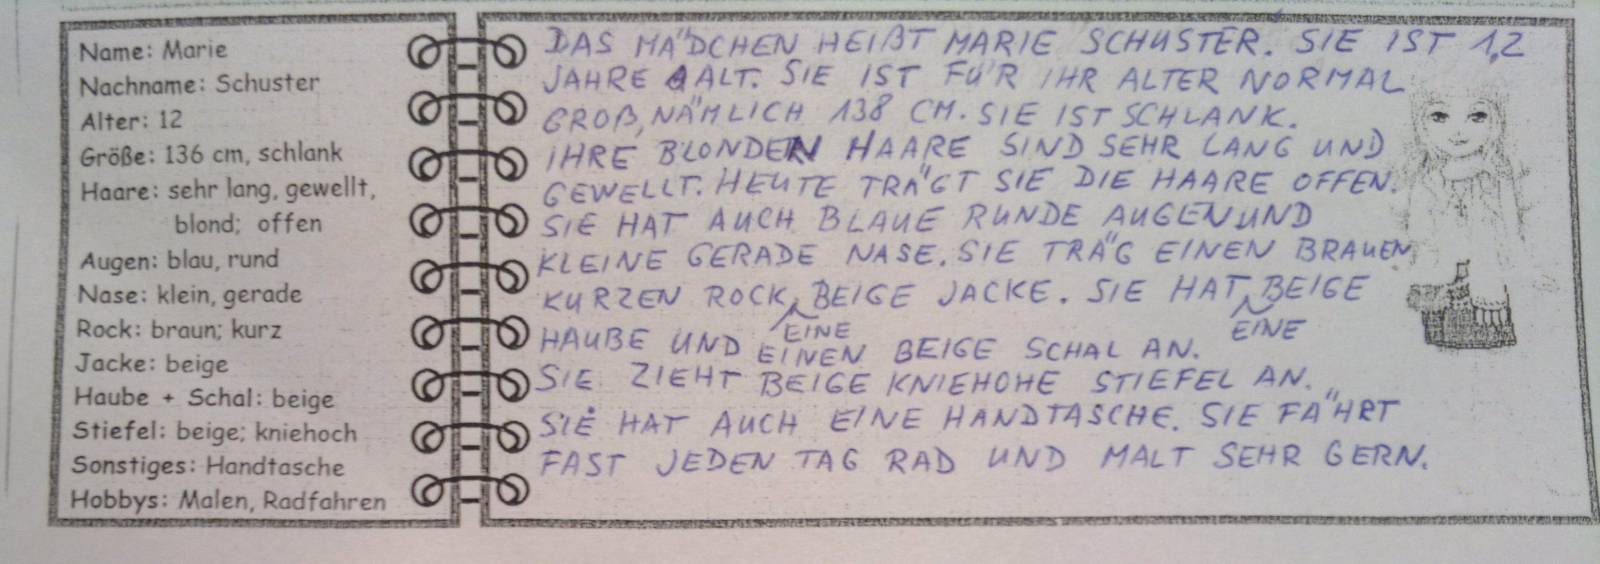 Name: Marie
Nachname: Schuster
Alter: 12
Größe: 136 cm, schlank
Haare: sehr lang, gewellt,
blond; offen
Augen: blau, rund
Nase: klein, gerade
Rock: braun; kurz
Jacke: beige
Haube + Schal: beige
Stiefel: beige; kniehoch
Sonstiges: Handtasche
Hobbys: Malen, Radfahren
DAS MÄDCHEN HEIßT MARIE SCHUSTER. SIE IST 12
JAHRE ALT. SIE IST FÜR IHR ALTER NORMAL
GROß, NÄMLICH 138 CM. SIE IST SCHLANK.
IHRE BLONDEN HAARE SIND SEHR LANG UND
GEWELLT. HEUTE TRÄGT SIE DIE HAARE OFFEN.
SIE HAT AUCH BLAUE RUNDE AUGEN UND
KLEINE GERADE NASE. SIE TRÄG EINEN BRAUEN
KURZEN ROCK, BEIGE JACKE. SIE HAT BEIGE
EINE EINE
HAUBE UND EINEN BEIGE SCHAL AN.
SIE ZIEHT BEIGE KNIEHOHE STIEFEL AN.
SIE HAT AUCH EINE HANDTASCHE. SIE FÄHRT
FAST JEDEN TAG RAD UND MALT SEHR GERN.